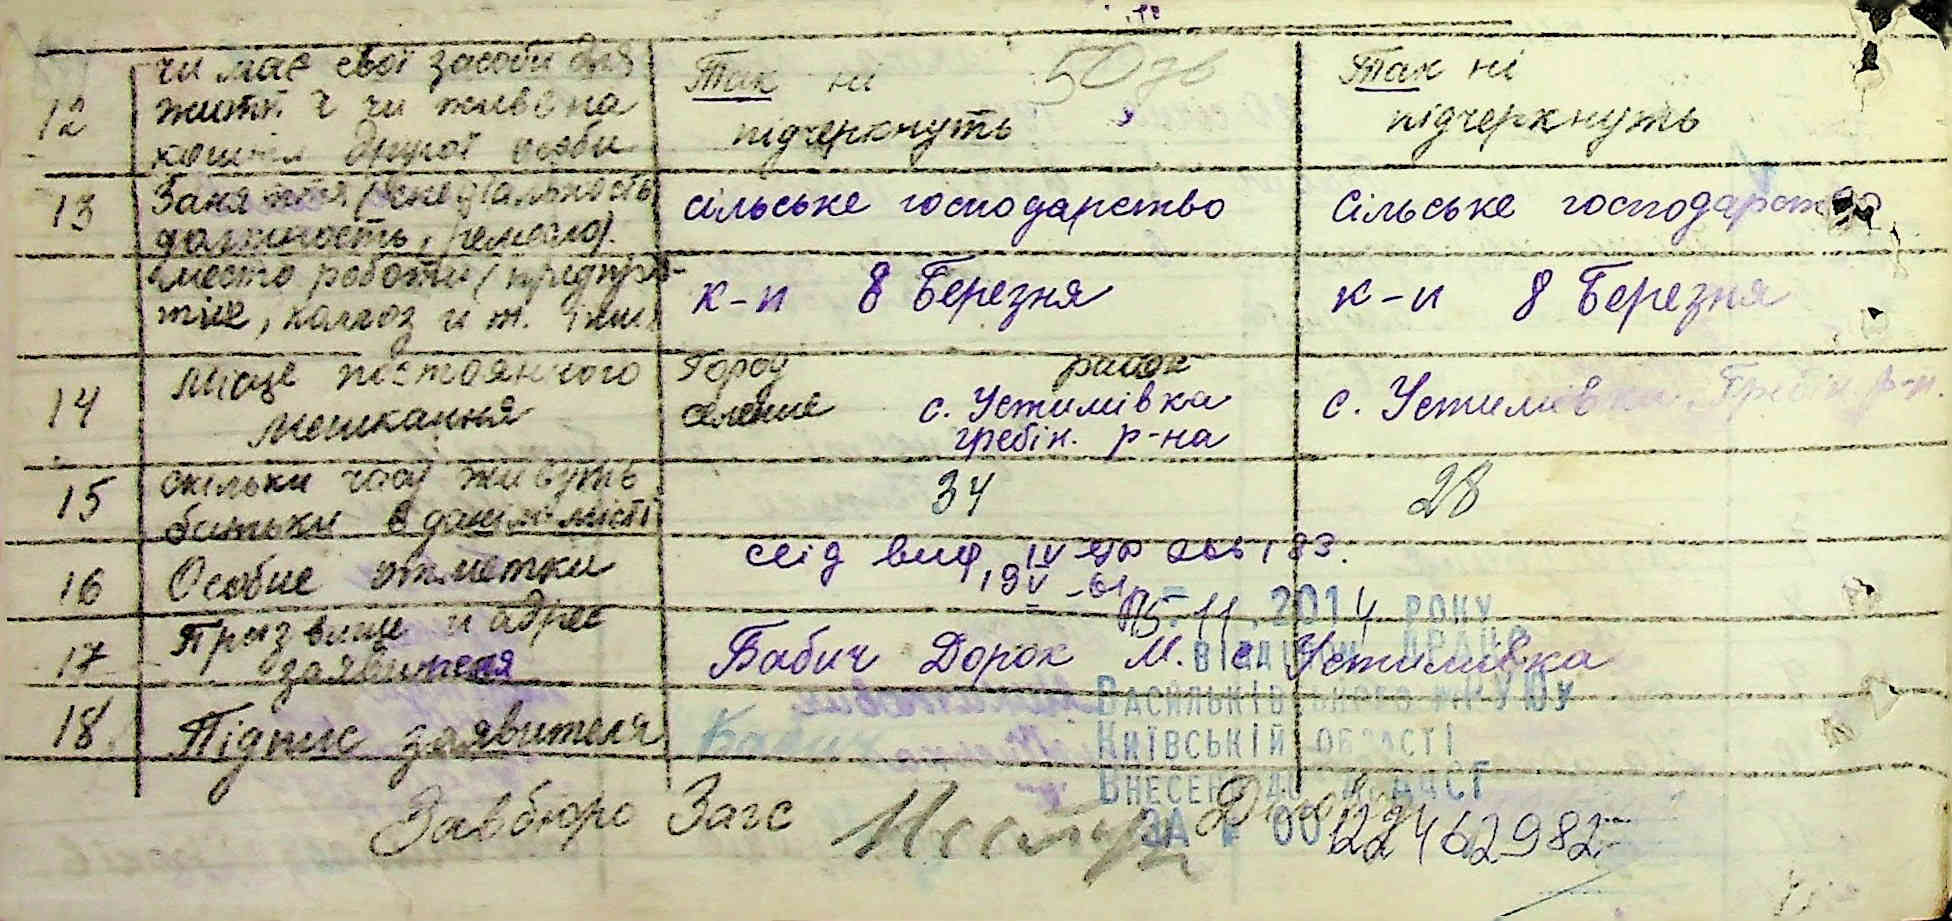 12 чи має свої засоби для Так ні 50 Так ні
життя чи живе на підчеркнуть підчеркнуть
коштах другої особи
13 Заняття (спеціальность сільське господарство Сільське господарство
должность, ремесло).
место работи (предпрія- к-п 8 Березня к-п 8 Березня
тіе, колгоз и т.
14 Місце постоянного Город район
мешкання селение с. Устимівка с. Устимівка Гребін. р-н.
гребін. р-на
15 скільки часу живуть 34 28
батьки в даній місті
16 Особие отметки
19 V -61
15.11.2014 РОКУ
17 Прызвище и адрес Бабич Дорок М. с Устимівка
заявителя
ВІДДІЛОМ ДРАЦС
ВАСИЛЬКІВСЬКОГО МРУЮ
18. Підпис заявителя Бабич
КИЇВСЬКІЙ ОБЛАСТІ
ВНЕСЕНО ДО ДРАЦСГ
Завбюро Загс
ЗА № 00122462982